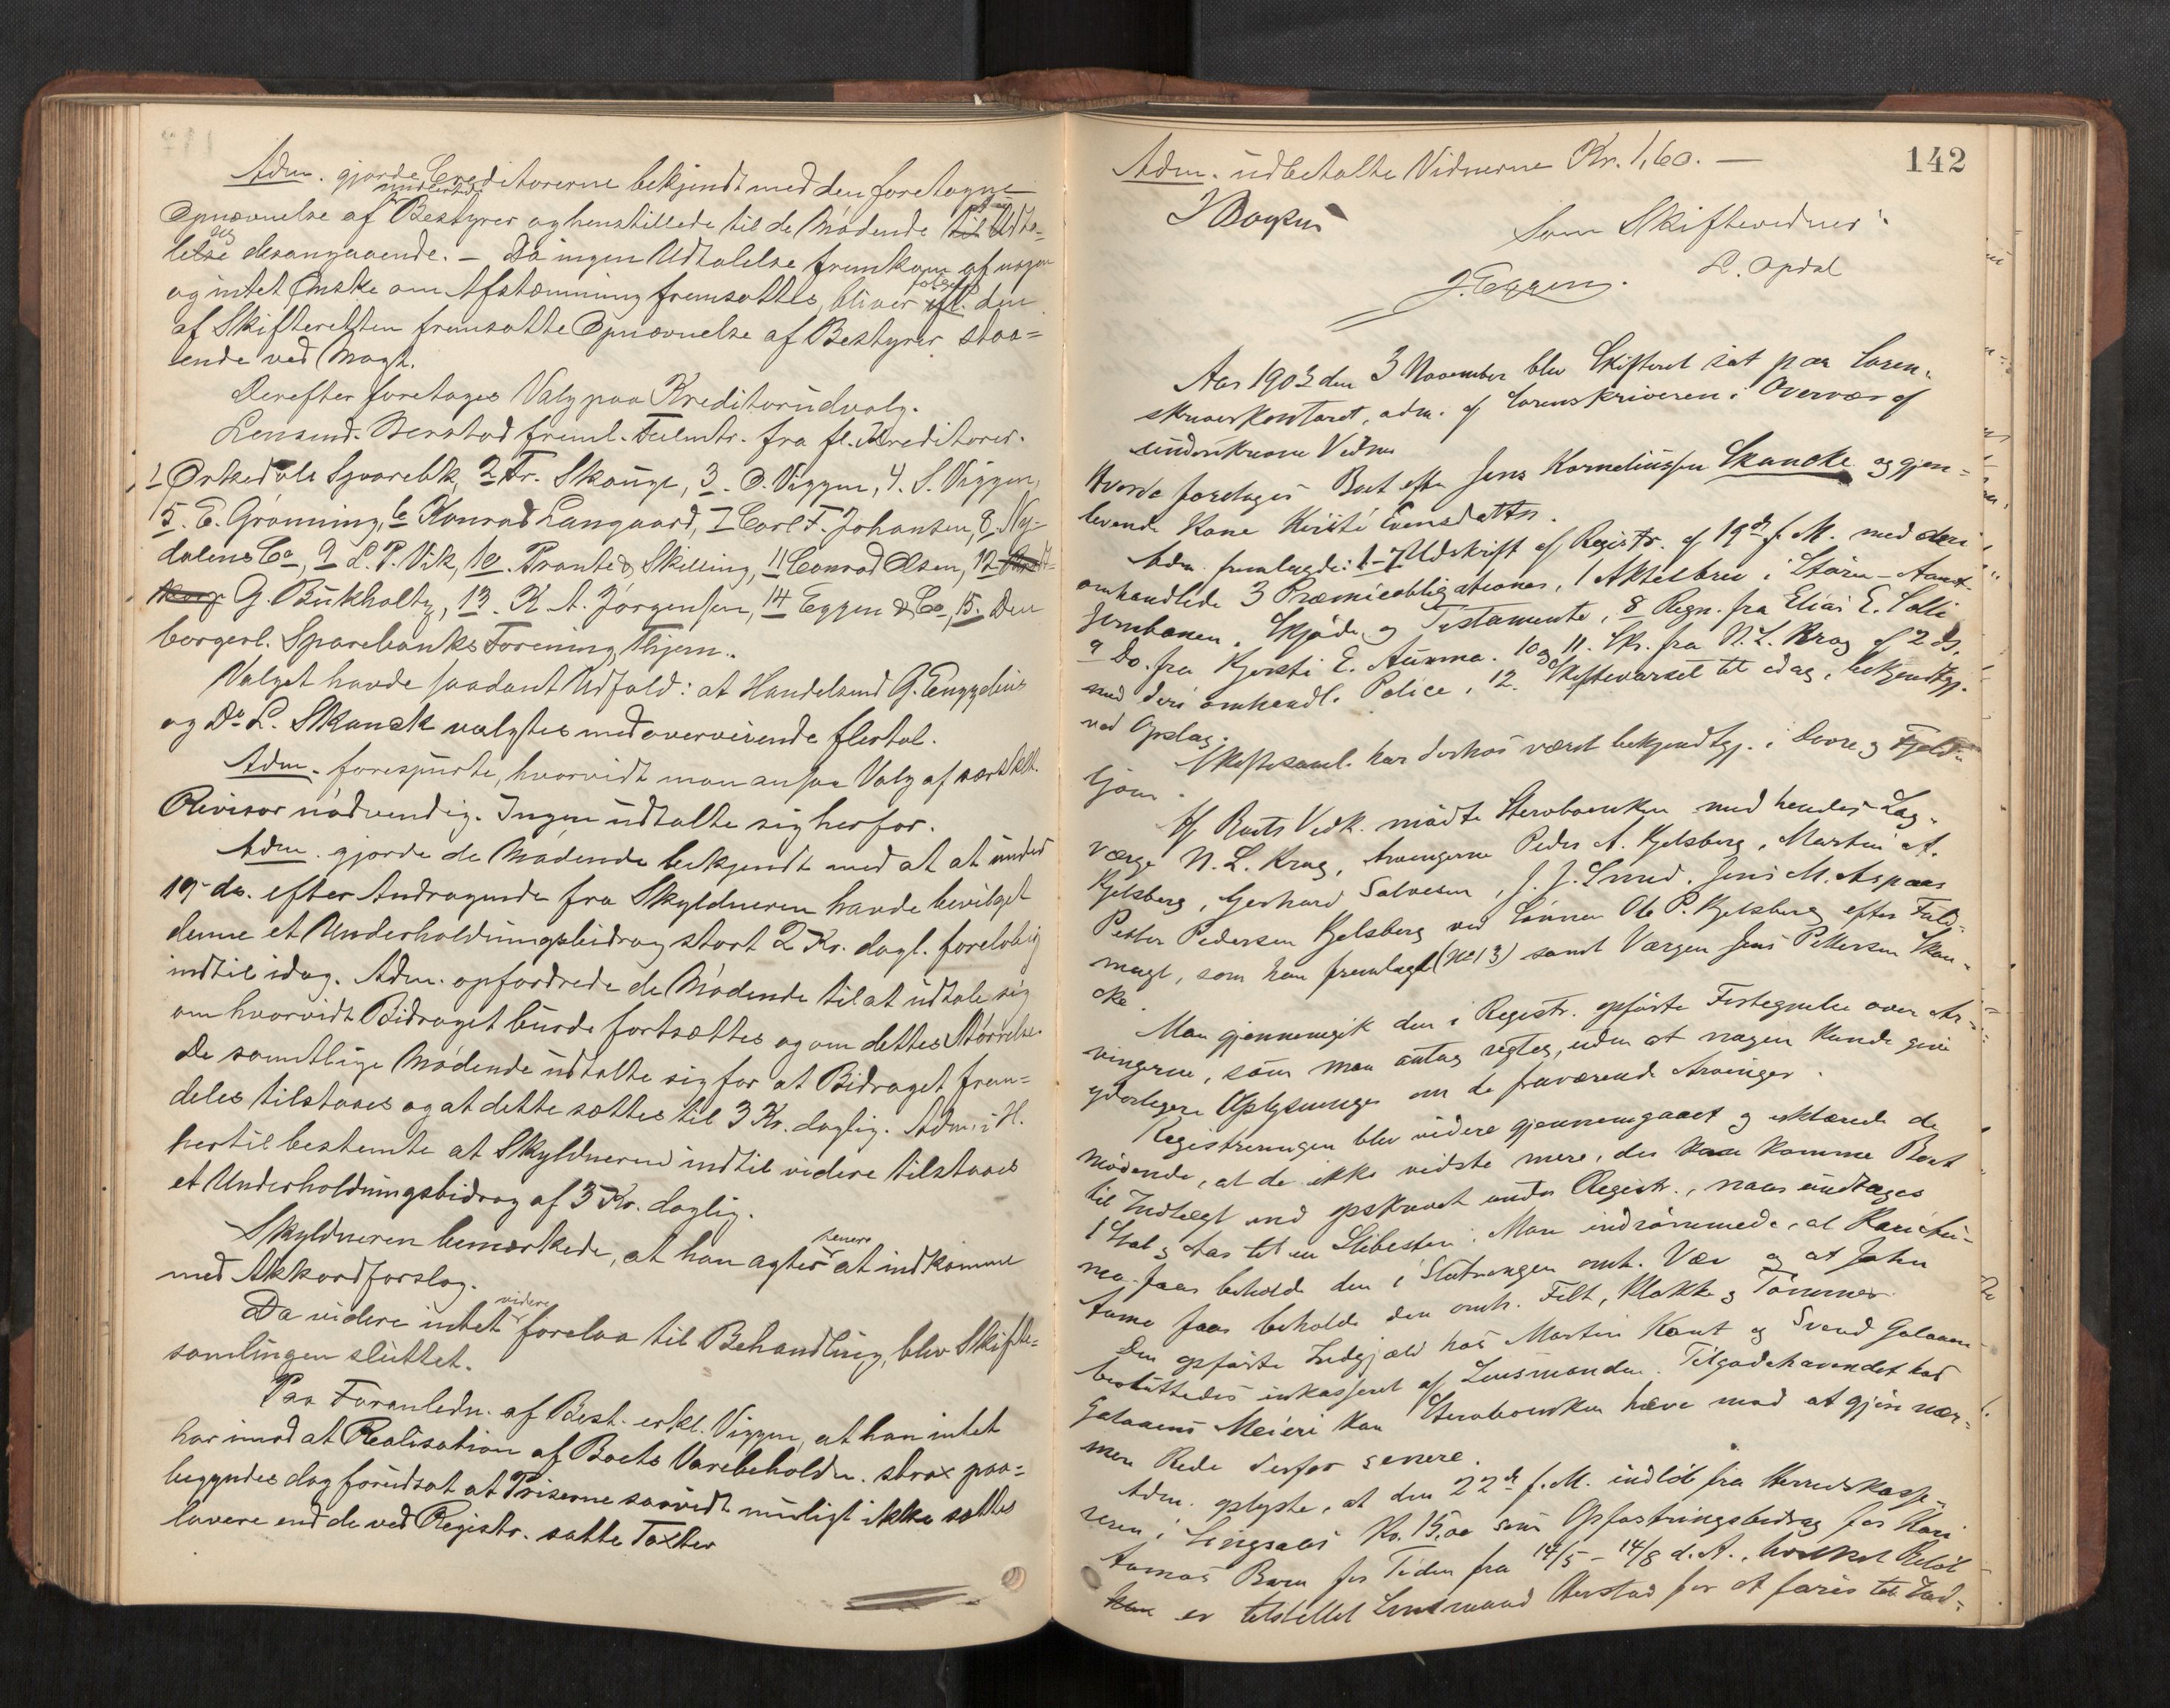 Adm. gjorde Creditorerne bekjendt med den foretagne
Opnævnelse af Bestyrer og henstillede til de Mødende at udta=
le sig desangaaende. – Da ingen Udtalelse fremkom af nogen
og intet Ønske om Afstemning fremsattes, bliver følgel. den
af Skifteretten fremsatte Opnævnelse af Bestyrer staa=
ende ved Magt.
Derefter foretoges Valg paa Kreditorudvalg.
Lensmd. Herstad freml. Fuldmtr. fra fl. Kreditorer.
1 Orkedals Sparebk, 2 Fr. Skauge, 3. O. Viggen, 4. S. Viggen,
5. E. Grønning, 6 Konrad Langaard, 7 Carl F. Johansen, 8. Ny=
dalens Co, 9 L. P. Vik, 10. Brante & Skilling, 11 Conrad Olsen, 12
G. Bukholtz, 13. K. A. Jørgensen, 14 Eggen & Co, 15. Den
borgerl. Sparebanks Forening, Thjem..
Valget havde saadant Udfald: at Handelsmd G. Engzelius
og Do L. Skanck valgtes med overveiende flertal.
Adm. forespurte, hvorvidt man ansaa Valg af særskilt
Revisor nødvendig. Ingen udtalte sig herfor.
Adm. gjorde de Mødende bekjendt med at at under
19 ds. efter Andragende fra Skyldneren havde bevilget
denne et Underholdningsbidrag stort 2 Kr. dagl. foreløbig
indtil idag. Adm. opfordrede de Mødende til at udtale sig
om hvorvidt Bidraget burde fortsættes og om dettes Størrelse.
De samtlige Mødende udtalte sig for at Bidraget frem=
deles tilstaaes og at dette sættes til 3 Kr. daglig. Adm. i H.
hertil bestemte at Skyldneren indtil videre tilstaaes
et Underholdningsbidrag af 3 Kr. daglig.
Skyldneren bemærkede, at han agter senere at indkomme
med Akkordforslag.
Da videre intet videre forelaa til Behandling, blev Skifte=
samlingen sluttet.
Paa Foranledn. af Best. erkl. Viggen, at han intet
har imod at Realisation af Boets Varebeholdn. strax paa=
begyndes dog forudsat at Priserne saavidt muligt ikke sættes
lavere end de ved Registr. satte Taxter
142
Adm. udbetalte Vidnerne Kr. 1,60. —
Som Skiftevidner:
L. Opdal
J. Eggen.
Aar 1903 den 3 November blev Skifteret sat paa Soren=
skriverkontoret, adm. af Sorenskriveren i Overvær af
underskrevne Vidner
Hvorda foretoges Boet efter Jens Korneliussen Skancke og gjen=
levende Kone Kirsti Evensdatter.
Adm. fremlagde: 1–7 Udskrift af Registr. af 19de f. M. med deri
omhandlede 3 Præmieobligationer, 1 Aktiebrev i Støren–Aamot
Jernbanen, Skjøde og Testamente, 8 Regn. fra Elias E. Solli
9 Do. fra Kjersti E. Aunma. 10 og 11. Skr. fra N. L. Krag af 2 ds.
med deri omhandl. Police, 12. Skiftevarsel til idag, bekjendtgj.
ved Opslag.
Skiftesaml. har derhos været bekjendtgj. i Dovre og Fjeld=
ljom.
Af Boets Vedk. mødte Stervboenken med hendes Lag=
værge N. L. Krag, Arvingerne Peder A. Kjelsberg, Martin A.
Kjelsberg, Gerhard Salvesen, J. J. Smed, Jens M. Aspaas
Petter Pedersen Kjelsberg ved Sønnen Ole P. Kjelsberg efter Fuld=
magt, som han fremlagde (No 13) samt Værgen Jens Pettersen Skan=
cke.
Man gjennemgik den i Registr. opførte Fortegnelse over Ar=
vingerne, som man antog rigtig, uden at nogen kunde give
yderligere Oplysninger om de fraværende Arvinger.
Registreringen blev videre gjennemgaaet og erklærede de
mødende, at de ikke vidste mere, der kan komme Boet
til Indtægt end opskrevet under Registr., naar undtages
1 Stab og Aas til en Slibesten. Man indrømmede, at Kari Au=
ma faar beholde den i Slutningen omh. Væv og at John
Auma faar beholde den omh. Felt, Klokke og Tømmer.
Den opførte Indgjæld hos Martin Kant og Svend Galaaen
besluttedes inkasseret af Lensmanden. Tilgodehavendet hos
Galaaens Meieri kan Stervboenken hæve mod at gjøre nær=
mere Rede derfor senere.
Adm. oplyste, at den 22de f. M. indløb fra Herredskasse=
reren i Singsaas Kr. 15,00 som Opfostringsbidrag for Kari
Aumas Barn for Tiden fra 14/5 – 14/8 d. A., hvilket Beløb
er tilstillet Lensmand Herstad for at føres til Ind=